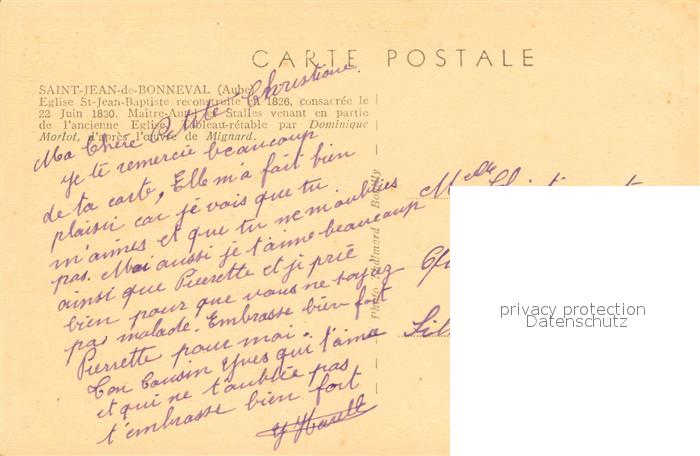 CARTE POSTALE
SAINT-JEAN-de-BONNEVAL (Aube)
Eglise St-Jean-Baptiste reconstruite en 1826, consacrée le
22 Juin 1830. Maître-Autel et Stalles venant en partie
de l'ancienne Eglise. Tableau-rétable par Dominique
Morlot, d'après l'œuvre de Mignard.
Ma Chère Petite Christiane.
Je te remercie beaucoup
de ta carte, Elle m'a fait bien
plaisir car je vois que tu
m'aimes et que tu ne m'oublies
pas. Moi aussi je t'aime beaucoup
ainsi que Pierrette et je prie
bien pour que vous ne soyez
pas malade. Embrasse bien fort
Pierrette pour moi.
Ton Cousin Yves qui t'aime
et qui ne t'oublie pas
t'embrasse bien fort
Photo
Melle
privacy protection
Datenschutz